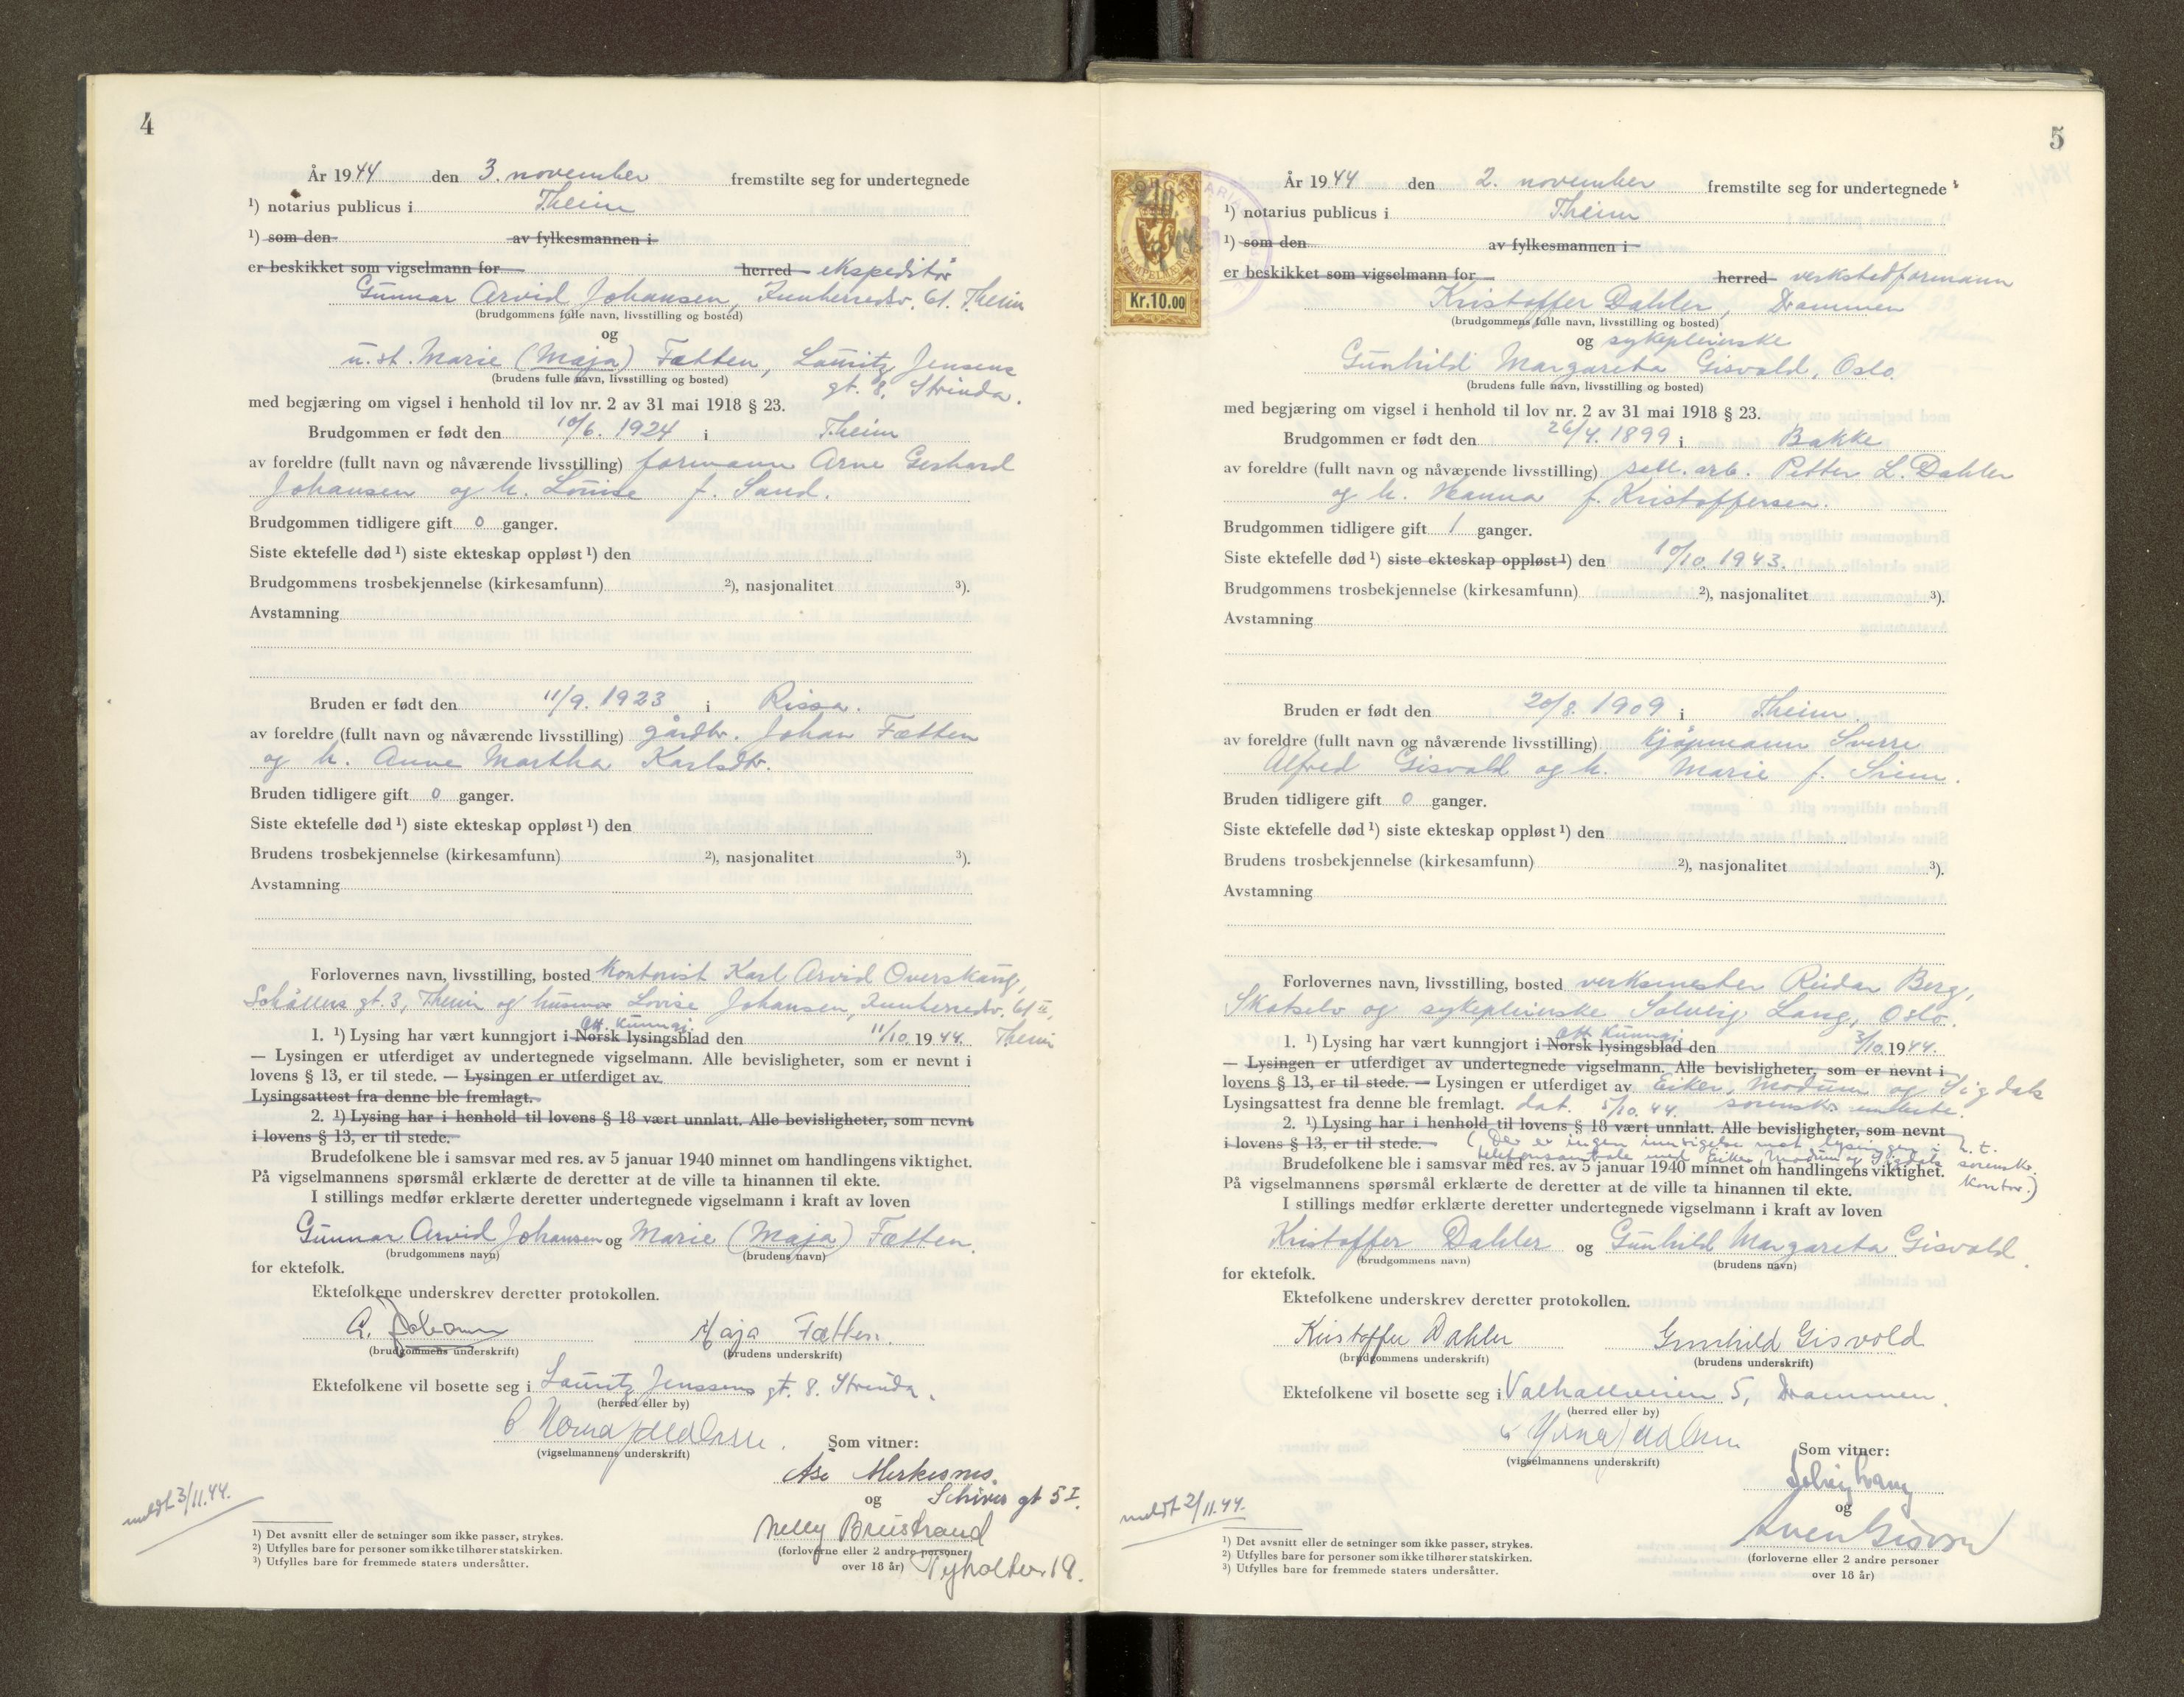 4
År 1944 den 3. november fremstilte seg for undertegnede
¹) notarius publicus i Theim
¹) som den av fylkesmannen i
er beskikket som vigselmann for herred ekspeditør
Gunnar Arvid Johansen, Innherredsv. 61. Theim
(brudgommens fulle navn, livsstilling og bosted)
og
u.st. Marie (Maja) Fætten, Lauritz Jensens
(brudens fulle navn, livsstilling og bosted) gt. 8, Strinda.
med begjæring om vigsel i henhold til lov nr. 2 av 31 mai 1918 § 23.
Brudgommen er født den 10/6. 1924 i Theim
av foreldre (fullt navn og nåværende livsstilling) formann Arne Gerhard
Johansen og h. Louise f. Sand.
Brudgommen tidligere gift 0 ganger.
Siste ektefelle død ¹) siste ekteskap oppløst ¹) den
Brudgommens trosbekjennelse (kirkesamfunn) ²), nasjonalitet ³).
Avstamning
Bruden er født den 11/9. 1923 i Rissa.
av foreldre (fullt navn og nåværende livsstilling) gårdbr. Johan Fætten
og h. Anne Martha Karlsdtr.
Bruden tidligere gift 0 ganger.
Siste ektefelle død ¹) siste ekteskap oppløst ¹) den
Brudens trosbekjennelse (kirkesamfunn) ²), nasjonalitet ³).
Avstamning
Forlovernes navn, livsstilling, bosted kontorist Karl Arvid Overskaug,
gt. 3, Theim og husmor Lovise Johansen, Innherredsv. 61 II,
Theim
off. kunngj.
1. ¹) Lysing har vært kunngjort i Norsk lysingsblad den 11/10. 1944.
— Lysingen er utferdiget av undertegnede vigselmann. Alle bevisligheter, som er nevnt i
lovens § 13, er til stede. — Lysingen er utferdiget av
Lysingsattest fra denne ble fremlagt.
2. ¹) Lysing har i henhold til lovens § 18 vært unnlatt. Alle bevisligheter, som nevnt
i lovens § 13, er til stede.
Brudefolkene ble i samsvar med res. av 5 januar 1940 minnet om handlingens viktighet.
På vigselmannens spørsmål erklærte de deretter at de ville ta hinannen til ekte.
I stillings medfør erklærte deretter undertegnede vigselmann i kraft av loven
Gunnar Arvid Johansen og Marie (Maja) Fætten.
(brudgommens navn) (brudens navn)
for ektefolk.
Ektefolkene underskrev deretter protokollen.
G. Johansen Maja Fætten.
(brudgommens underskrift) (brudens underskrift)
Ektefolkene vil bosette seg i Lauritz Jenssens gt. 8. Strinda.
(herred eller by)
(vigselmannens underskrift) Som vitner:
Åse
og gt 5 I.
Nelly Breistrand
(forloverne eller 2 andre personer
over 18 år) 19.
meldt 3/11.44.
¹) Det avsnitt eller de setninger som ikke passer, strykes.
²) Utfylles bare for personer som ikke tilhører statskirken.
³) Utfylles bare for fremmede staters undersåtter.
5
STEMPELMERKE
Kr.10.00
År 1944 den 2. november fremstilte seg for undertegnede
¹) notarius publicus i Theim
¹) som den av fylkesmannen i
er beskikket som vigselmann for herred verkstedformann
Kristoffer Dahler, Drammen
(brudgommens fulle navn, livsstilling og bosted)
og sykepleierske
Gunhild Margareta Gisvold, Oslo
(brudens fulle navn, livsstilling og bosted)
med begjæring om vigsel i henhold til lov nr. 2 av 31 mai 1918 § 23.
Brudgommen er født den 26/4. 1899 i Bakke
av foreldre (fullt navn og nåværende livsstilling) sell. arb. Petter L. Dahler
og h. Hanna f. Kristoffersen.
Brudgommen tidligere gift 1 ganger.
Siste ektefelle død ¹) siste ekteskap oppløst ¹) den 10/10. 1943.
Brudgommens trosbekjennelse (kirkesamfunn) ²), nasjonalitet ³).
Avstamning
Bruden er født den 20/8. 1909 i Theim.
av foreldre (fullt navn og nåværende livsstilling) kjøpmann Sverre
Alfred Gisvold og h. Marie f. Sriem.
Bruden tidligere gift 0 ganger.
Siste ektefelle død ¹) siste ekteskap oppløst ¹) den
Brudens trosbekjennelse (kirkesamfunn) ²), nasjonalitet ³).
Avstamning
Forlovernes navn, livsstilling, bosted verksmester Reidar Berg,
Skotselv og sykepleierske Solveig Lang, Oslo.
off. kunngj.
1. ¹) Lysing har vært kunngjort i Norsk lysingsblad den 3/10. 1944.
— Lysingen er utferdiget av undertegnede vigselmann. Alle bevisligheter, som er nevnt i
lovens § 13, er til stede. — Lysingen er utferdiget av Eiker, Modum og Sigdals
Lysingsattest fra denne ble fremlagt. dat. 5/10. 44. sorenskr. embete.
2. ¹) Lysing har i henhold til lovens § 18 vært unnlatt. Alle bevisligheter, som nevnt
i lovens § 13, er til stede. (Der er ingen innsigelse mot lysingen, h. t.
telefonsamtale med Eiker, Modum og Sigdals sorenskr.
kontor.)
Brudefolkene ble i samsvar med res. av 5 januar 1940 minnet om handlingens viktighet.
På vigselmannens spørsmål erklærte de deretter at de ville ta hinannen til ekte.
I stillings medfør erklærte deretter undertegnede vigselmann i kraft av loven
Kristoffer Dahler og Gunhild Margareta Gisvold.
(brudgommens navn) (brudens navn)
for ektefolk.
Ektefolkene underskrev deretter protokollen.
Kristoffer Dahler Gunhild Gisvold
(brudgommens underskrift) (brudens underskrift)
Ektefolkene vil bosette seg i Valhallveien 5, Drammen.
(herred eller by)
(vigselmannens underskrift) Som vitner:
Solveig Lang
og
Sven Gisvold
(forloverne eller 2 andre personer
over 18 år)
meldt 2/11.44.
¹) Det avsnitt eller de setninger som ikke passer, strykes.
²) Utfylles bare for personer som ikke tilhører statskirken.
³) Utfylles bare for fremmede staters undersåtter.